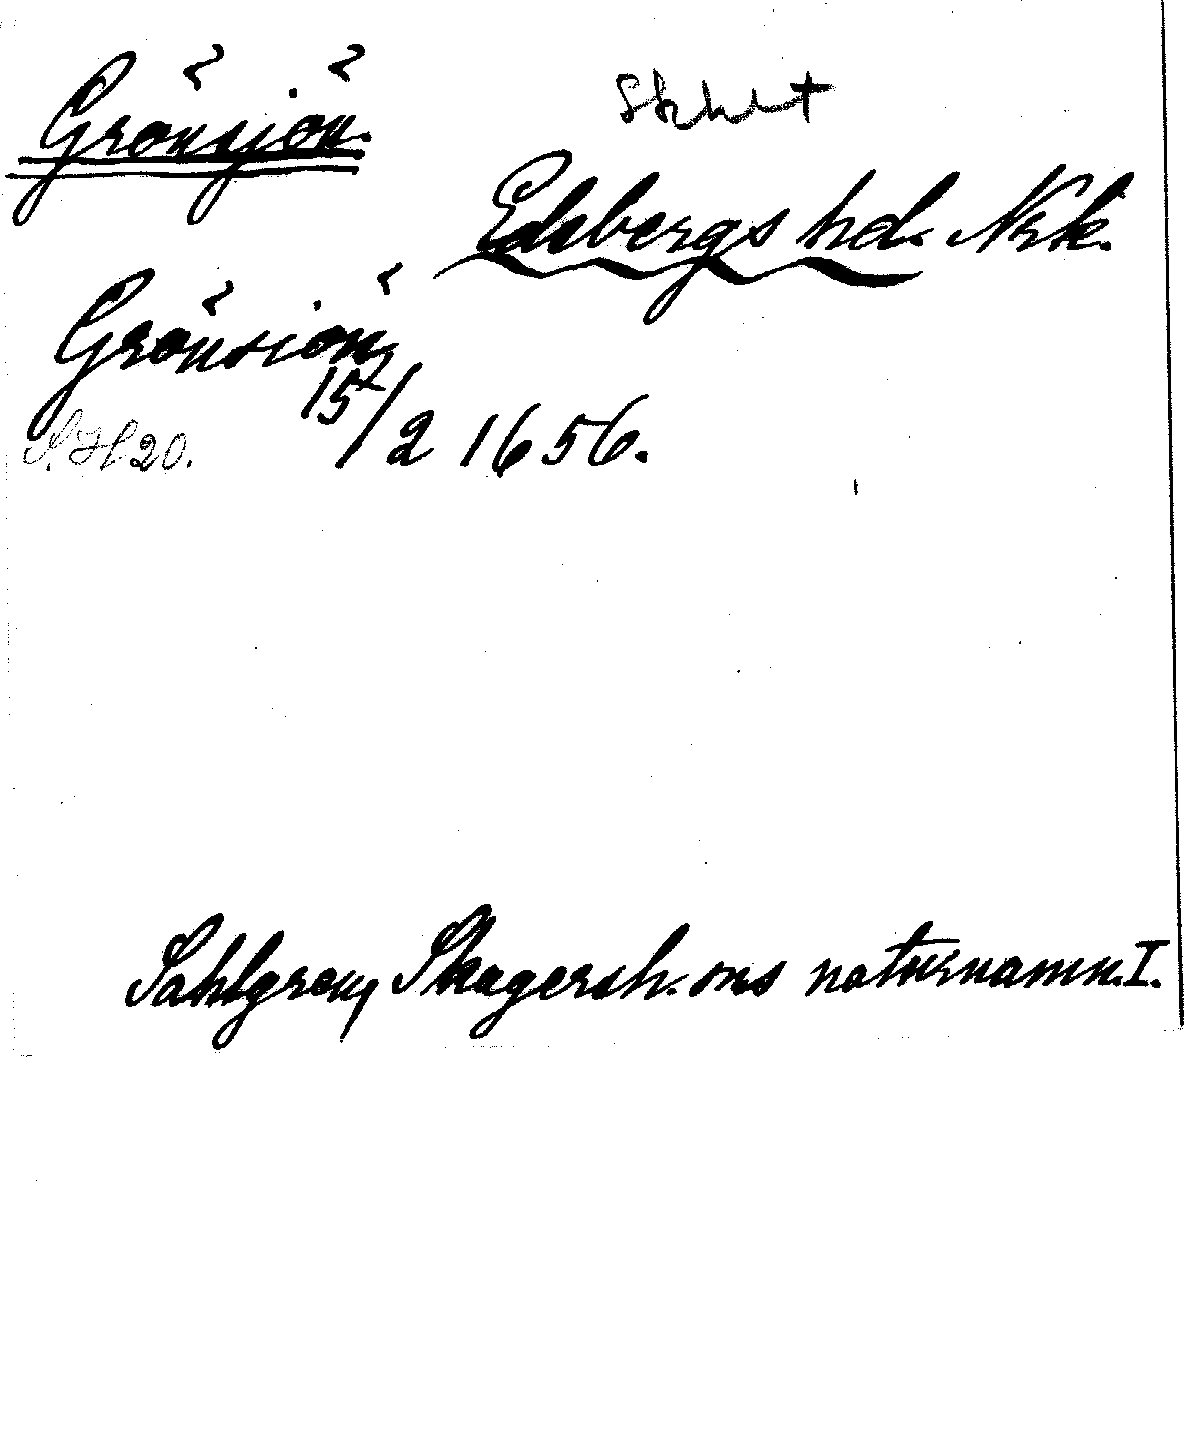 Grönsjön.
Skhlt
Edsbergs hd. Nrk.
Grönsiön,
15/2 1656.
S.H 20.
Sahlgren, Skagersh.-ons naturnamn.I.